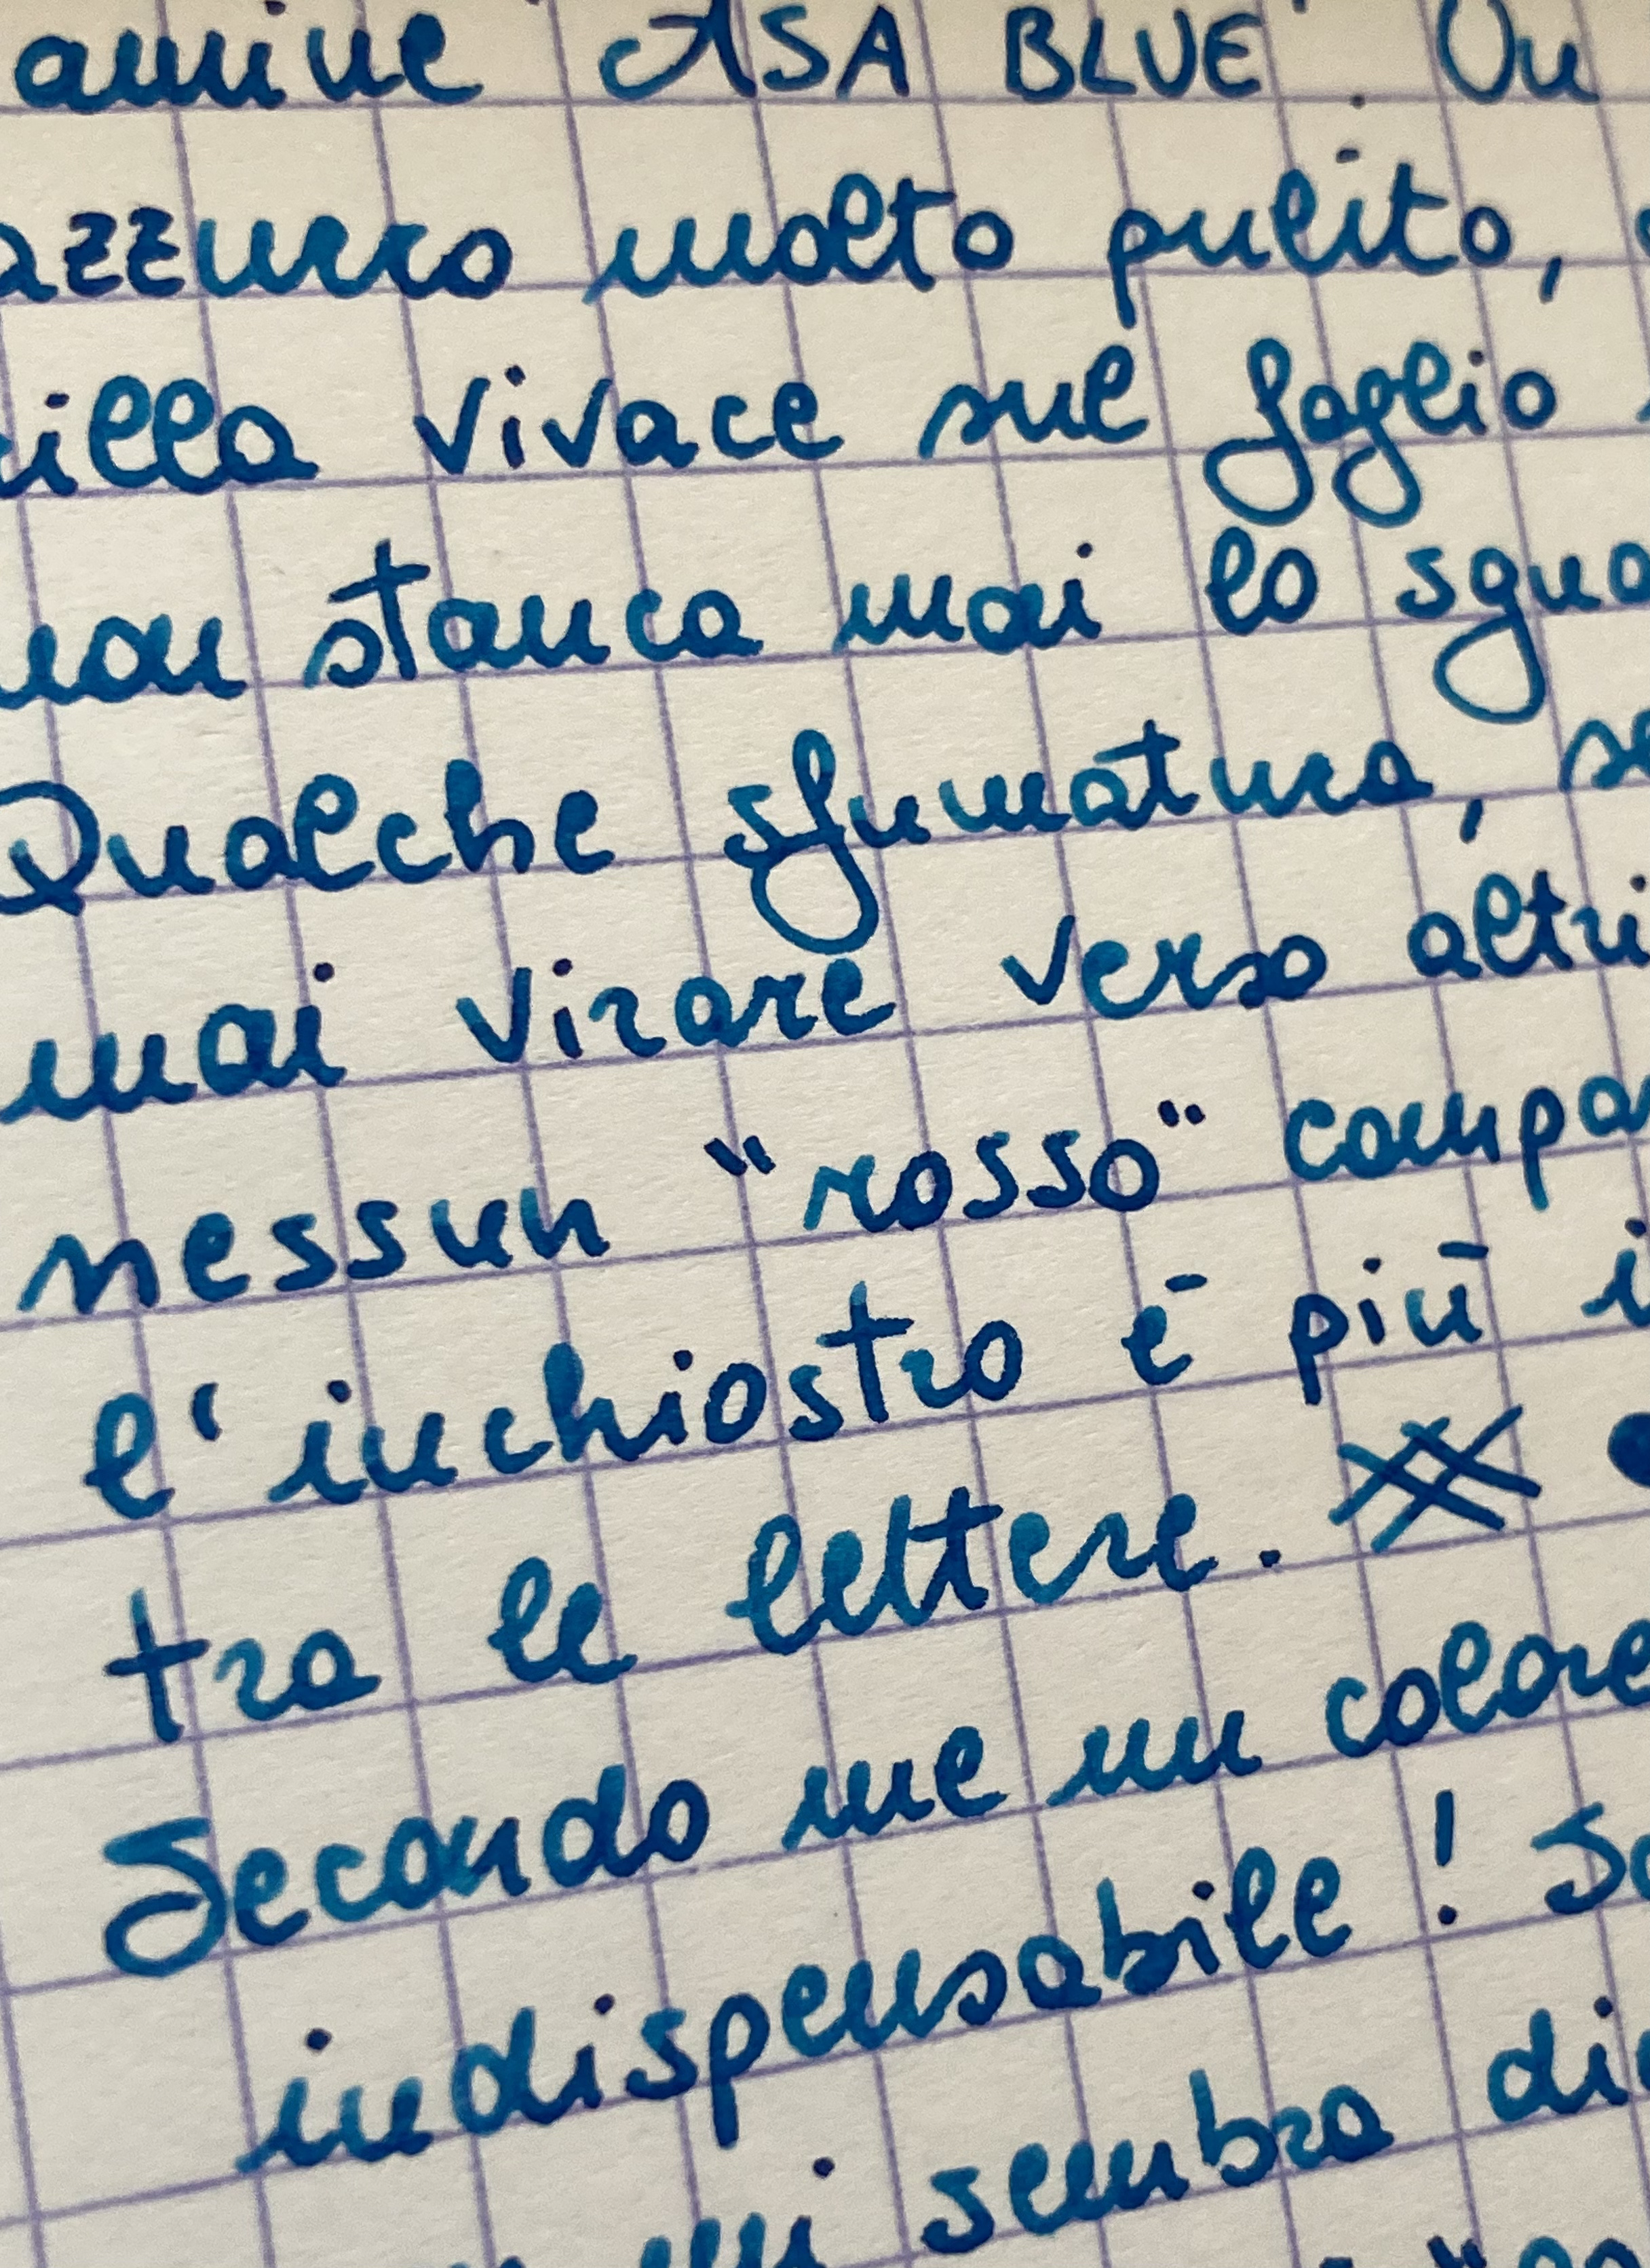 amine "ASA BLUE". Un
azzurro molto pulito,
rilla vivace sul foglio
non stanca mai lo sgua
Qualche sfumatura, se
mai virare verso altri
nessun "rosso" compa
l'inchiostro è più i
tra le lettere.
Secondo me un colore
indispensabile! So
mi sembra di